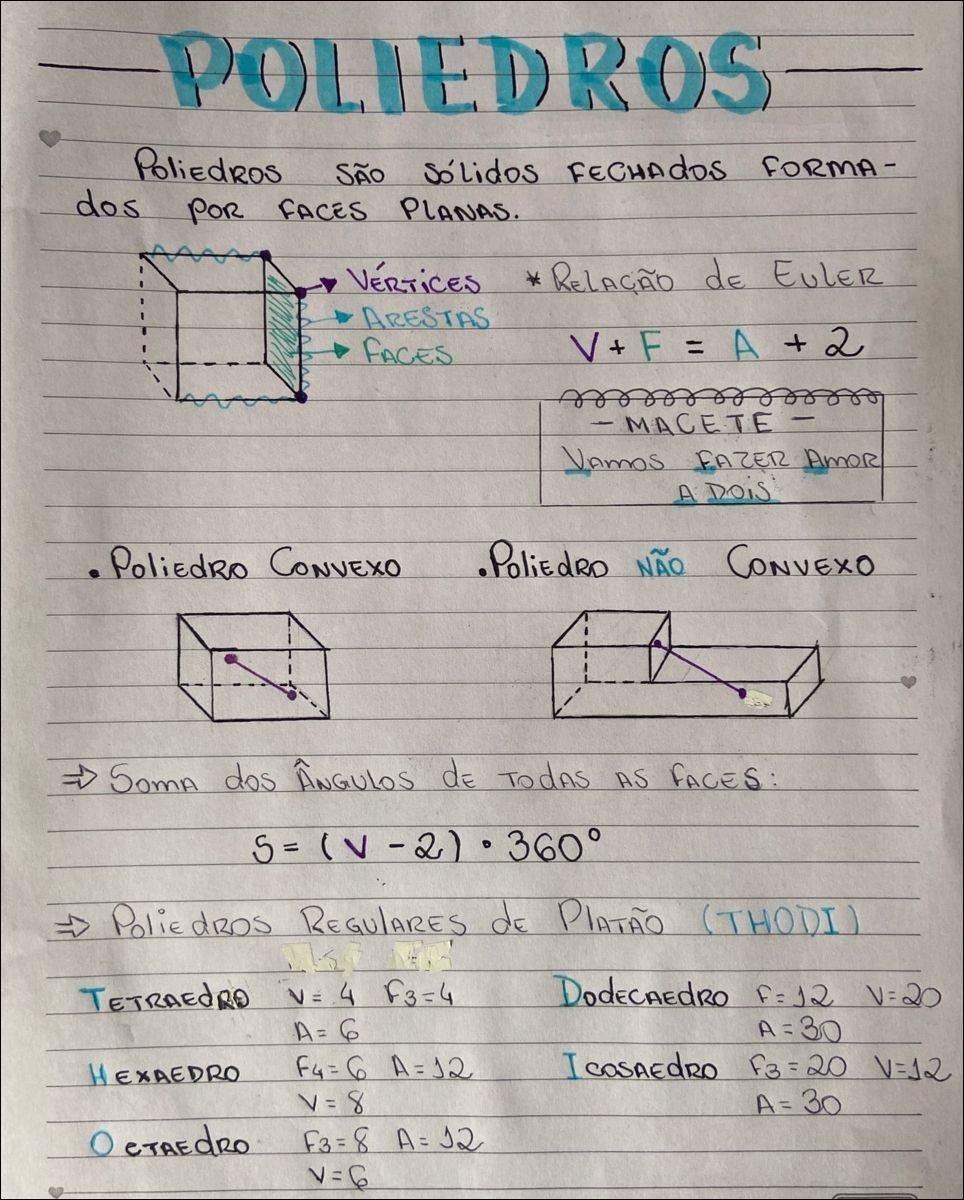 POLIEDROS
Poliedros são sólidos fechados forma-
dos por faces planas.
Vértices
Arestas
Faces
* Relação de Euler
V + F = A + 2
- MACETE -
Vamos fazer amor
a dois
. Poliedro Convexo
. Poliedro não Convexo
⇒ Soma dos Ângulos de todas as faces:
S = (V - 2) • 360°
⇒ Poliedros Regulares de Platão (THODI)
Tetraedro V = 4 F3 = 4
A = 6
Hexaedro F4 = 6 A = 12
V = 8
Octaedro F3 = 8 A = 12
V = 6
Dodecaedro F = 12 V = 20
A = 30
Icosaedro F3 = 20 V = 12
A = 30